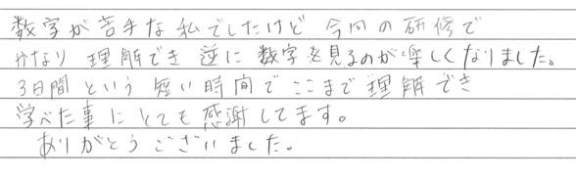 数字が苦手な私でしたけど 今回の研修で
かなり 理解でき 逆に 数字を見るのが楽しくなりました。
3日間という 短い時間で ここまで理解でき
学べた事にとても感謝してます。
ありがとうございました。